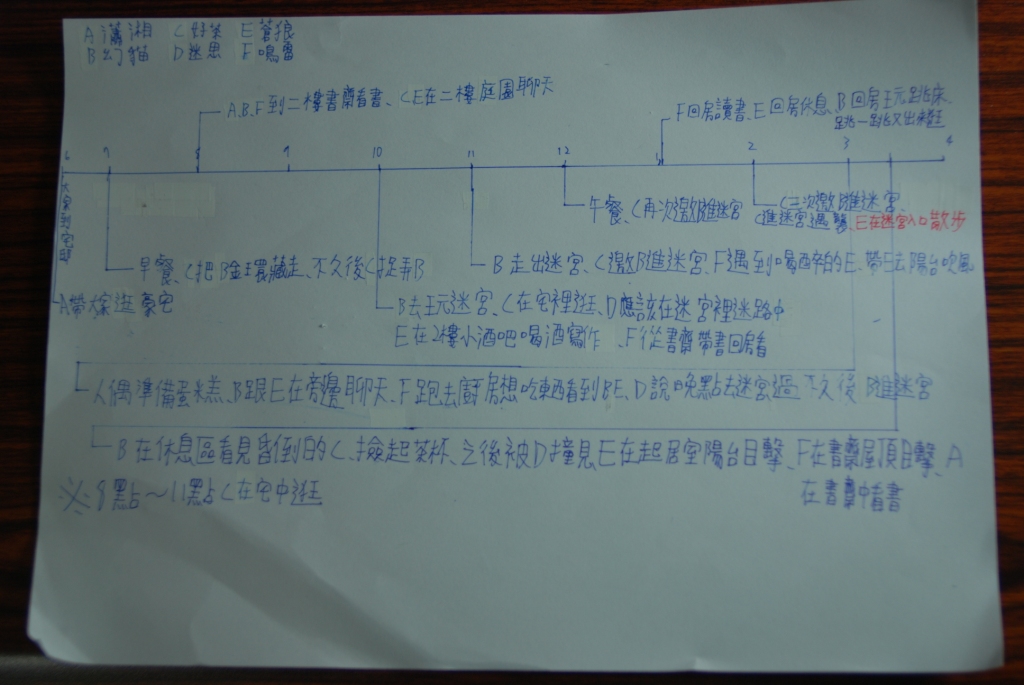 A 瀟湘 C 好茶 E 蒼狼
B 幻貓 D 迷思 F 鳴雷
A、B、F到二樓書齋看書、C E在二樓庭園聊天
F回房讀書、E回房休息、B回房玩跳床、
跳一跳又出來逛
6 7 8 9 10 11 12 1 2 3 4
大家到宅邸
午餐、C再次邀B進迷宮
C三次邀B進迷宮、
C進迷宮遇襲、E在迷宮入口散步
早餐、C把B金環藏走、不久後C捉弄B
B走出迷宮、C邀B進迷宮、F遇到喝酒的E、帶E去陽台吹風
A帶大家逛豪宅
B去玩迷宮、C在宅裡逛、D應該在迷宮裡迷路中
E在2樓小酒吧喝酒寫作、F從書齋帶書回房看
人偶準備蛋糕、B跟E在旁邊聊天、F跑去廚房想吃東西看到BE、D說晚點去迷宮過 不久後B進迷宮
B在休息區看見昏倒的C、撿起茶杯、之後被D撞見E在起居室陽台目擊、F在書齋屋頂目擊、A
在書齋中看書
※9點～11點C在宅中逛